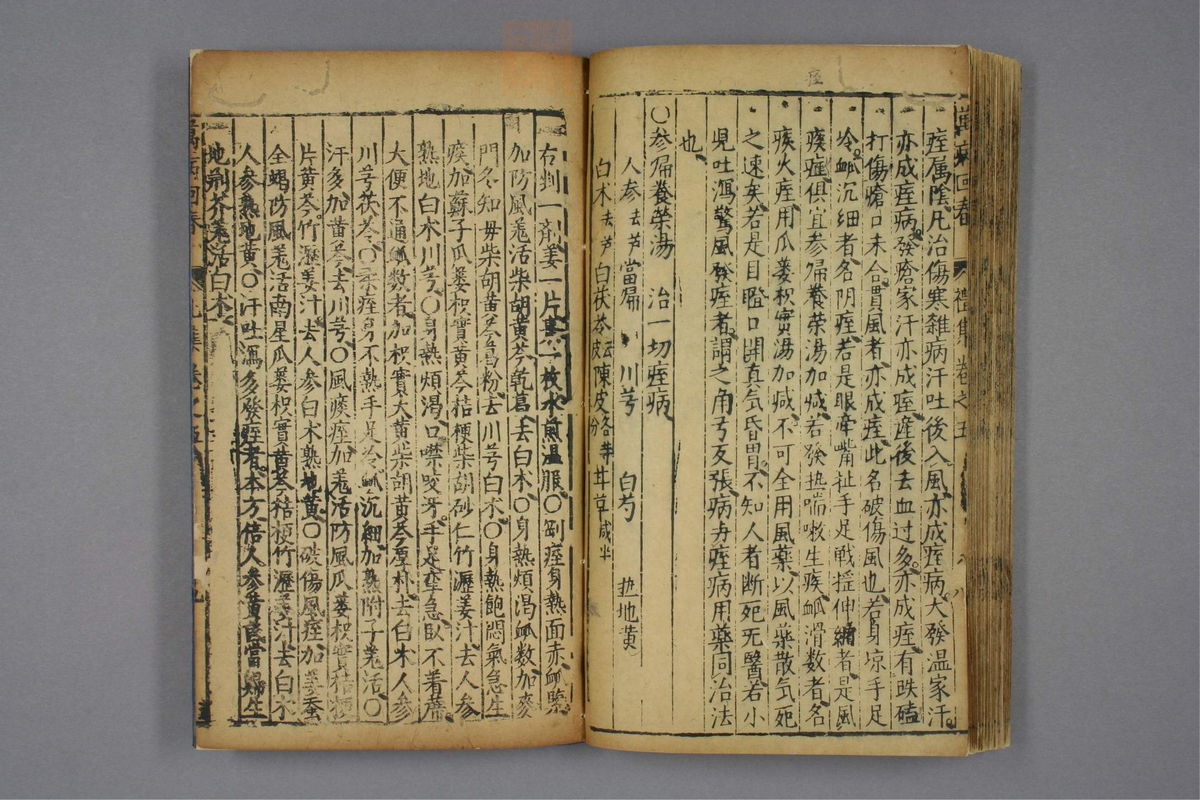 痓
萬病回春 禮集 卷之五
痓属陰凡治傷寒雜病汗吐後入風亦成痓病大發温家汗
亦成痓病發瘡家汗亦成痓産後去血过多亦成痓有跌磕
打傷瘡口未合貫風者亦成痓此名破傷風也若身凉手足
冷脉沉细者名阴痓若是眼牵嘴扯手足戰摇伸縮者是風
痰痓俱宜参歸養荣湯加减若發热喘嗽生痰脉滑数者名
痰火痓用瓜蔞枳實湯加减不可全用風藥以風藥散気死
之速矣若是目瞪口開真気昏冒不知人者断死无醫若小
児吐瀉驚風發痓者謂之角弓反張病与痓病用藥同治法
也
〇参歸養荣湯 治一切痓病
人参去芦 當歸 川芎 白芍 热地黄
白术去芦 白茯苓去皮 陳皮各等分 甘草减半
右剉一劑姜一片棗一枚水煎温服〇剛痓身熱面赤脉緊
加防風羗活柴胡黄芩乾葛去白术〇身熱煩渴脉数加麥
門冬知毋柴胡黄芩葛粉去川芎白术〇身熱飽悶氣急生
痰加蘇子瓜蔞枳實黄芩桔梗柴胡砂仁竹瀝姜汁去人参
熟地白术川芎〇身熱煩渴口噤咬牙手足牽急臥不着蓆
大便不通脉数者加枳實大黄柴胡黄芩厚朴去白术人参
川芎茯苓〇柔痓身不熱手足冷脉沉細加熟附子羗活〇
汗多加黄芩去川芎〇風痰痓加羗活防風瓜蔞枳實桔梗
片黄芩竹瀝姜汁去人参白术熟地黄〇破傷風痓加姜蚕
全蝎防風羗活南星瓜蔞枳實黄芩桔梗竹瀝姜汁去白术
人参熟地黄〇汗吐瀉多發痓者本方倍人参黄芪當歸生
地荆芥羗活白术